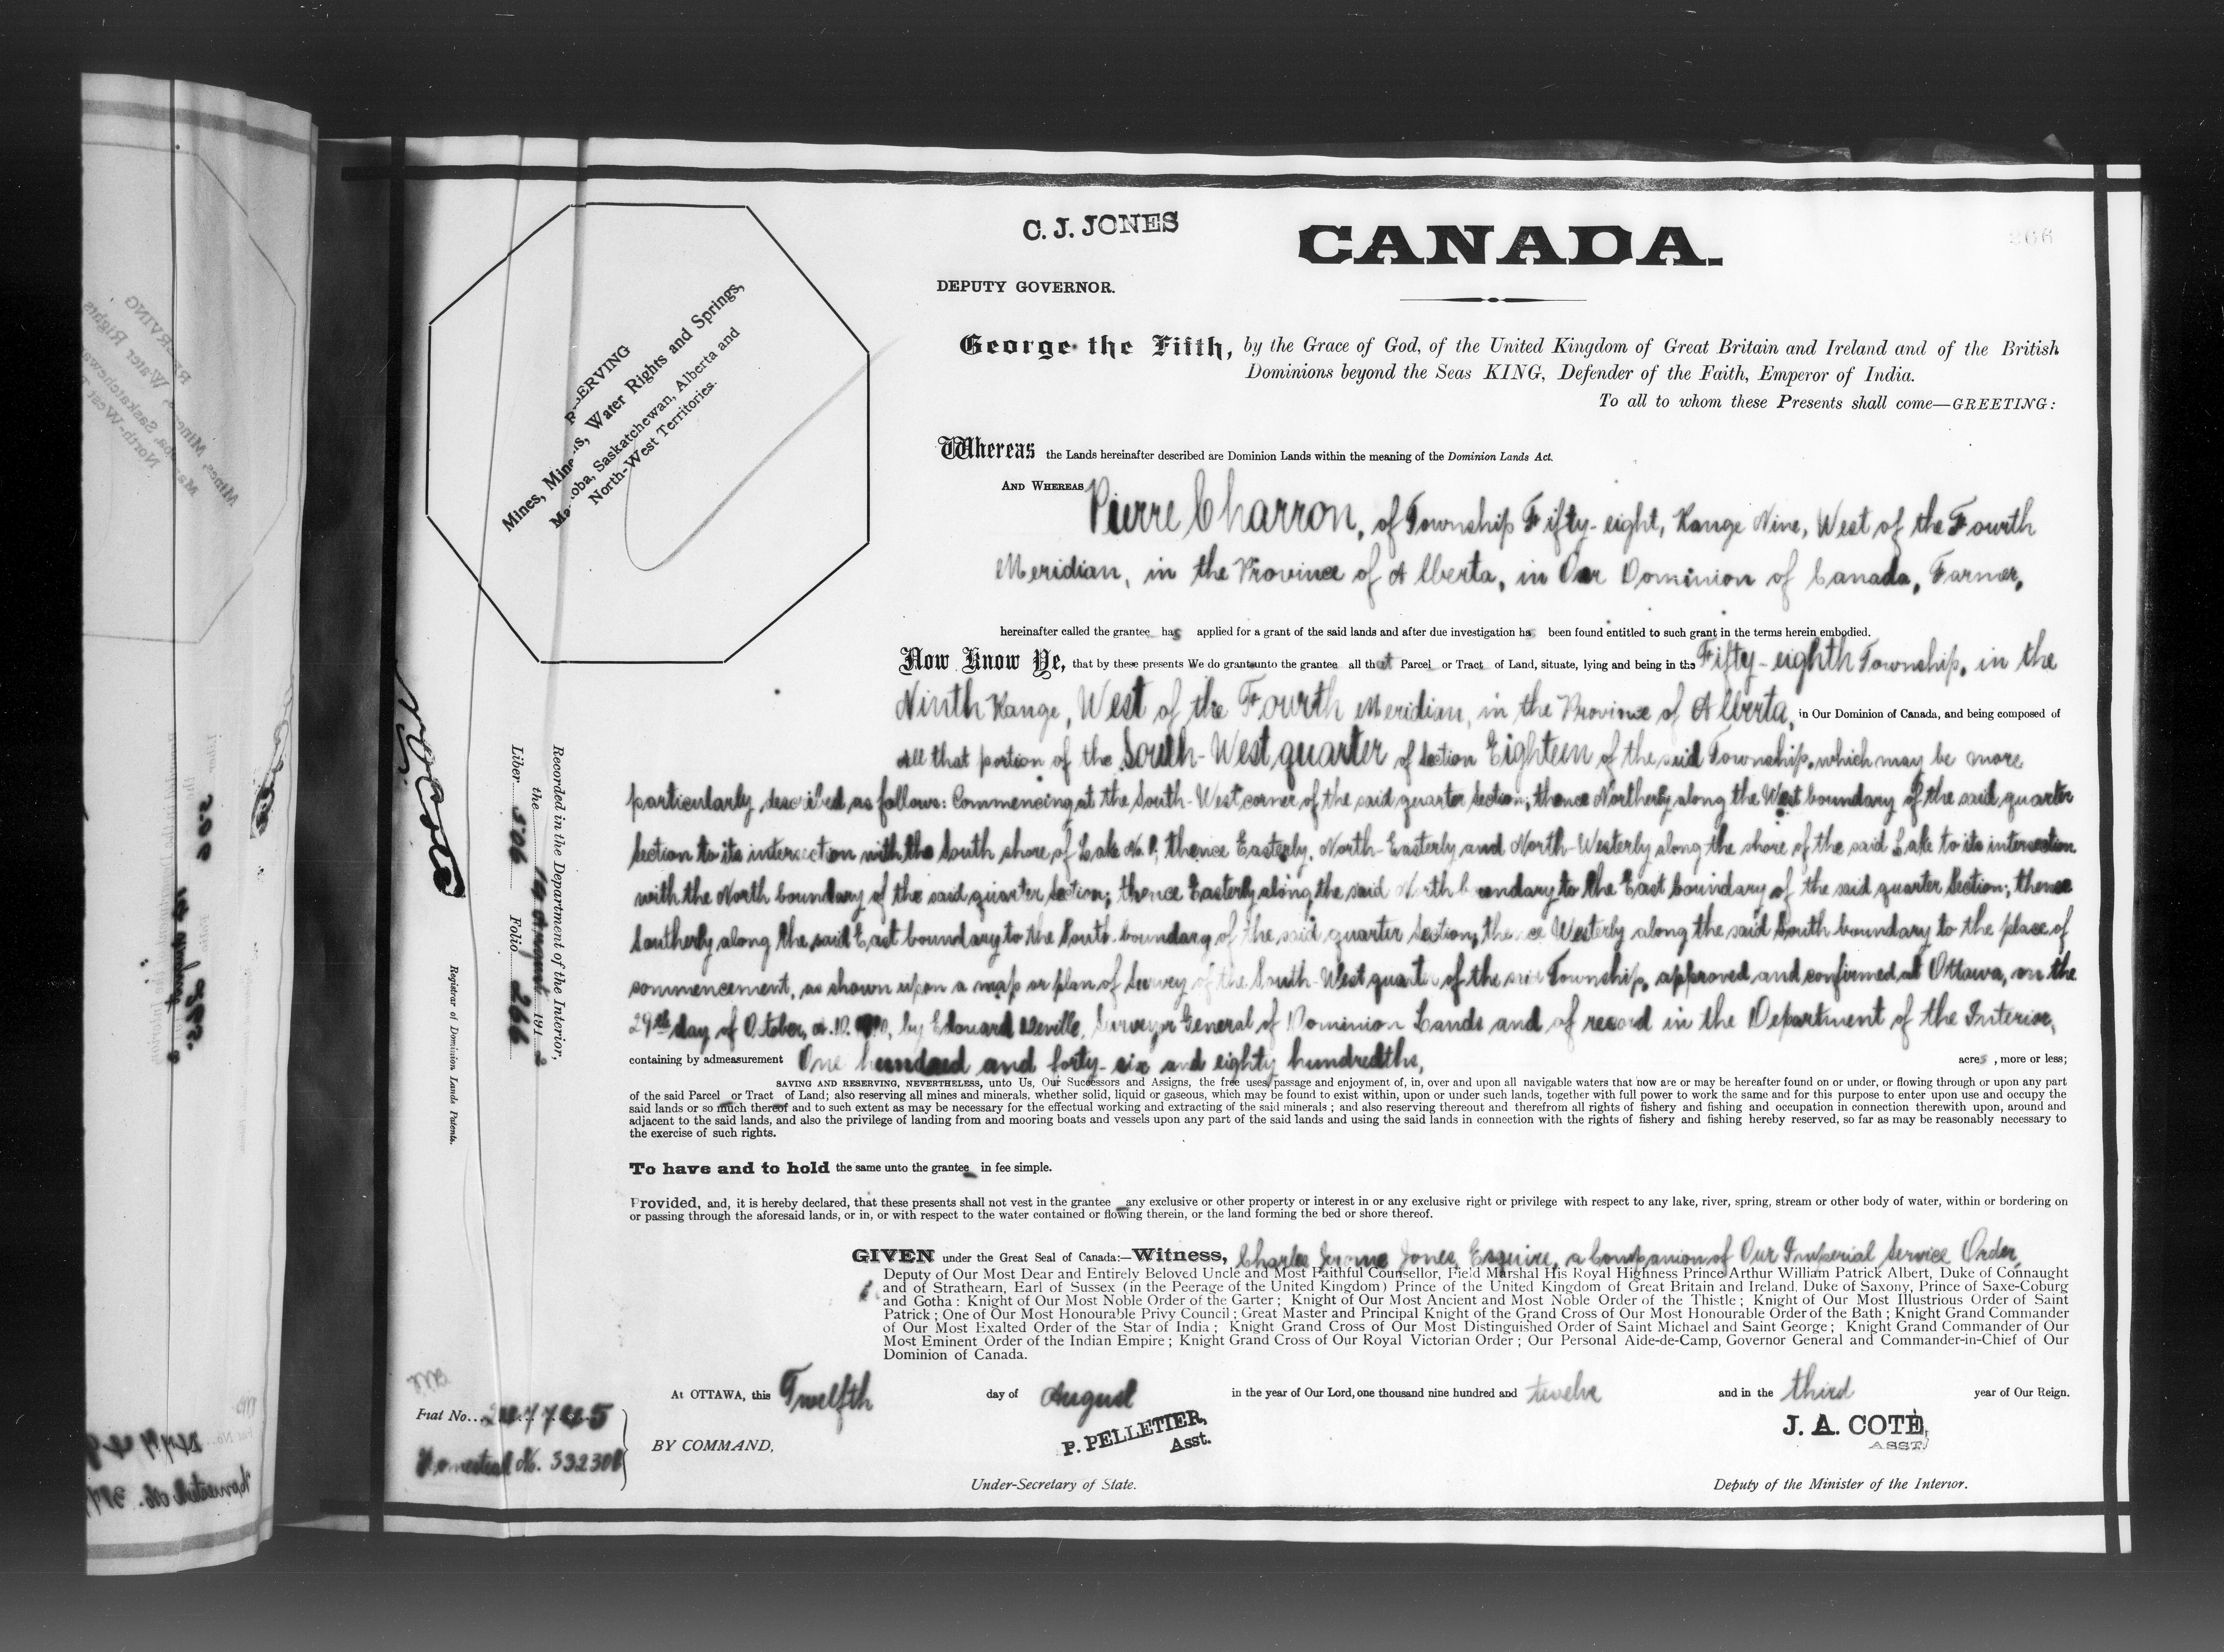 C. J. JONES
CANADA.
266
DEPUTY GOVERNOR.
George the Fifth, by the Grace of God, of the United Kingdom of Great Britain and Ireland and of the British
Dominions beyond the Seas KING, Defender of the Faith, Emperor of India.
To all to whom these Presents shall come—GREETING:
RESERVING
Mines, Minerals, Water Rights and Springs,
Manitoba, Saskatchewan, Alberta and
North-West Territories.
Whereas the Lands hereinafter described are Dominion Lands within the meaning of the Dominion Lands Act.
AND WHEREAS Pierre Charron, of Township Fifty-eight, Range Nine, West of the Fourth
Meridian, in the Province of Alberta, in Our Dominion of Canada, Farmer,
hereinafter called the grantee has applied for a grant of the said lands and after due investigation has been found entitled to such grant in the terms herein embodied.
Now Know Ye, that by these presents We do grant unto the grantee all that Parcel or Tract of Land, situate, lying and being in the Fifty-eighth Township, in the
Ninth Range, West of the Fourth Meridian, in the Province of Alberta, in Our Dominion of Canada, and being composed of
All that portion of the South-West quarter of Section Eighteen of the said Township, which may be more
particularly described as follows: Commencing at the South-West corner of the said quarter Section; thence Northerly along the West boundary of the said quarter
Section to its intersection with the South shore of Lake No. 1; thence Easterly, North-Easterly and North-Westerly along the shore of the said Lake to its intersection
with the North boundary of the said quarter Section; thence Easterly along the said North boundary to the East boundary of the said quarter Section; thence
Southerly along the said East boundary to the South boundary of the said quarter Section; thence Westerly along the said South boundary to the place of
commencement, as shown upon a map or plan of Survey of the South-West quarter of the said Township, approved and confirmed at Ottawa, on the
29th day of October, A.D. 1910, by Edouard Deville, Surveyor General of Dominion Lands and of record in the Department of the Interior,
containing by admeasurement One hundred and forty-six and eighty hundredths, acres, more or less;
SAVING AND RESERVING, NEVERTHELESS, unto Us, Our Successors and Assigns, the free uses, passage and enjoyment of, in, over and upon all navigable waters that now are or may be hereafter found on or under, or flowing through or upon any part
of the said Parcel or Tract of Land; also reserving all mines and minerals, whether solid, liquid or gaseous, which may be found to exist within, upon or under such lands, together with full power to work the same and for this purpose to enter upon use and occupy the
said lands or so much thereof and to such extent as may be necessary for the effectual working and extracting of the said minerals; and also reserving thereout and therefrom all rights of fishery and fishing and occupation in connection therewith upon, around and
adjacent to the said lands, and also the privilege of landing from and mooring boats and vessels upon any part of the said lands and using the said lands in connection with the rights of fishery and fishing hereby reserved, so far as may be reasonably necessary to
the exercise of such rights.
To have and to hold the same unto the grantee in fee simple.
Provided, and, it is hereby declared, that these presents shall not vest in the grantee any exclusive or other property or interest in or any exclusive right or privilege with respect to any lake, river, spring, stream or other body of water, within or bordering on
or passing through the aforesaid lands, or in, or with respect to the water contained or flowing therein, or the land forming the bed or shore thereof.
GIVEN under the Great Seal of Canada:—Witness, Charles Jerome Jones, Esquire, a Companion of Our Imperial Service Order,
Deputy of Our Most Dear and Entirely Beloved Uncle and Most Faithful Counsellor, Field Marshal His Royal Highness Prince Arthur William Patrick Albert, Duke of Connaught
and of Strathearn, Earl of Sussex (in the Peerage of the United Kingdom) Prince of the United Kingdom of Great Britain and Ireland, Duke of Saxony, Prince of Saxe-Coburg
and Gotha: Knight of Our Most Noble Order of the Garter; Knight of Our Most Ancient and Most Noble Order of the Thistle; Knight of Our Most Illustrious Order of Saint
Patrick; One of Our Most Honourable Privy Council; Great Master and Principal Knight of the Grand Cross of Our Most Honourable Order of the Bath; Knight Grand Commander
of Our Most Exalted Order of the Star of India; Knight Grand Cross of Our Most Distinguished Order of Saint Michael and Saint George; Knight Grand Commander of Our
Most Eminent Order of the Indian Empire; Knight Grand Cross of Our Royal Victorian Order; Our Personal Aide-de-Camp, Governor General and Commander-in-Chief of Our
Dominion of Canada.
At OTTAWA, this Twelfth day of August in the year of Our Lord, one thousand nine hundred and twelve and in the third year of Our Reign.
Fiat No.
Homestead No.
BY COMMAND,
P. PELLETIER,
Asst.
Under-Secretary of State.
J. A. COTÉ,
ASST.
Deputy of the Minister of the Interior.
Recorded in the Department of the Interior,
the 19 August 1912
Liber 506 Folio 266
Registrar of Dominion Lands Patents.